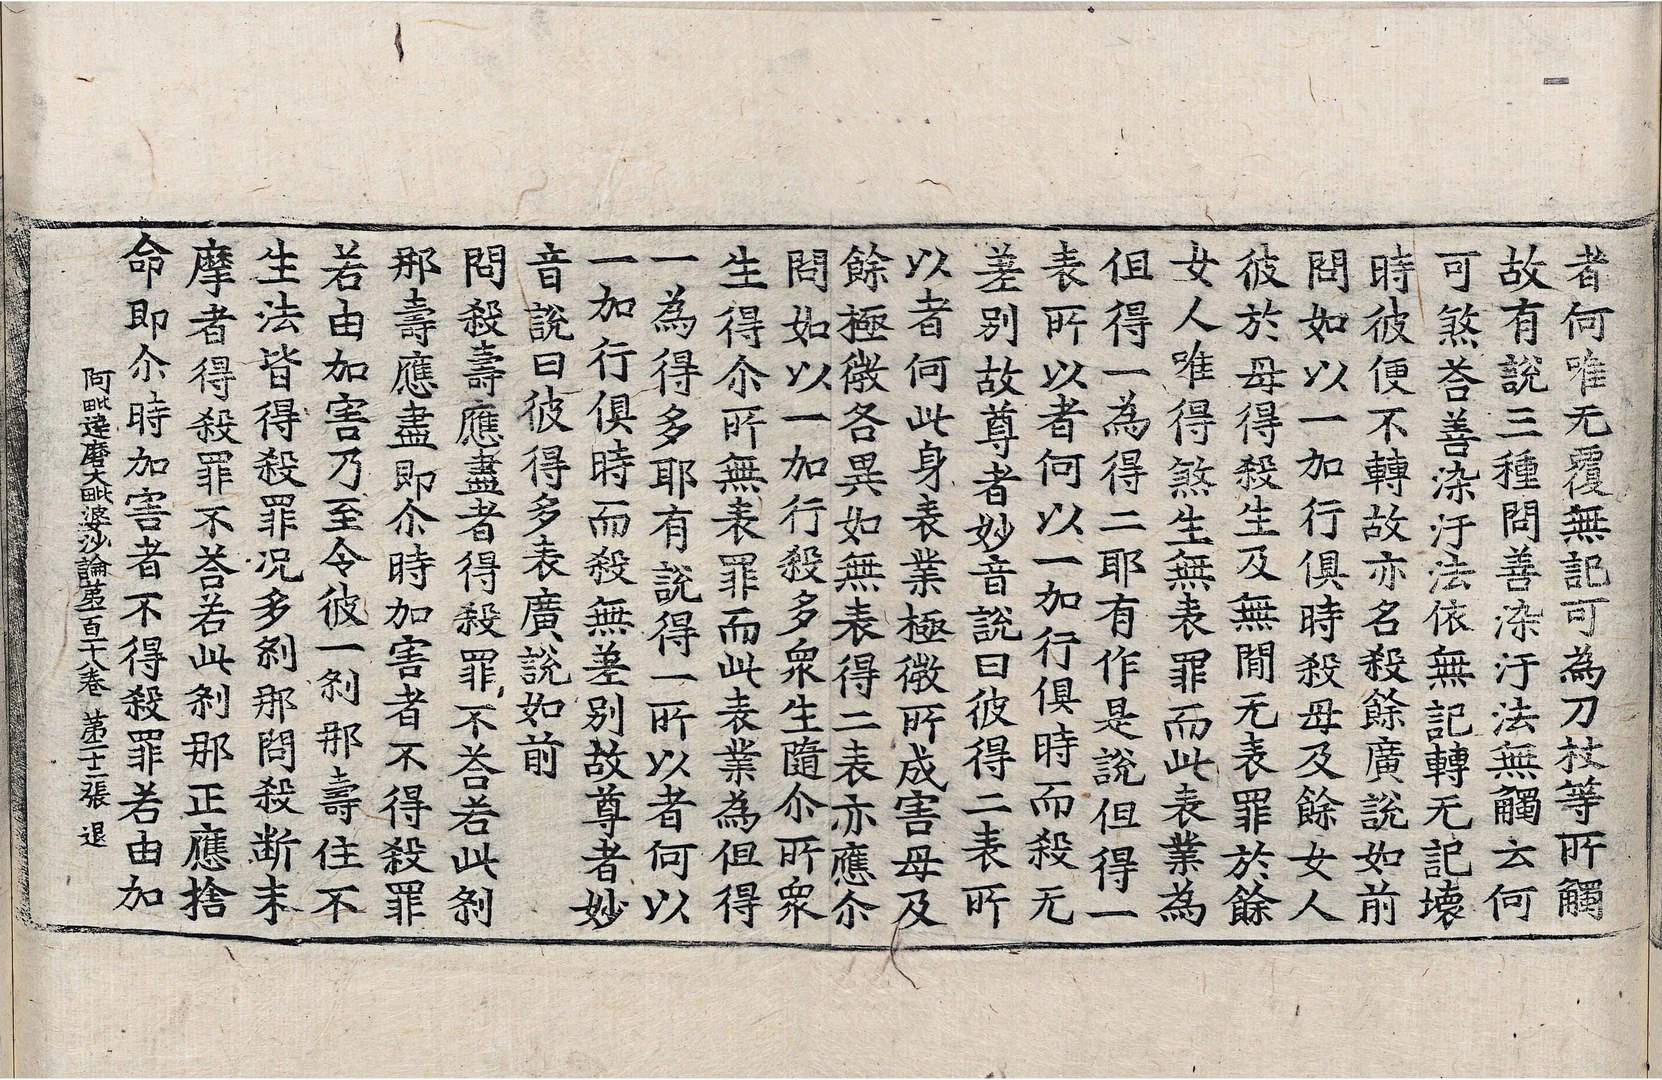 者何唯无覆無記可為刀杖等所觸
故有說三種問善染汙法無觸云何
可煞荅善染汙法依無記轉无記壞
時彼便不轉故亦名殺餘廣說如前
問如以一加行俱時殺母及餘女人
彼於母得殺生及無閒无表罪於餘
女人唯得煞生無表罪而此表業為
但得一為得二耶有作是說但得一
表所以者何以一加行俱時而殺无
差別故尊者妙音說曰彼得二表所
以者何此身表業極微所成害母及
餘極微各異如無表得二表亦應尒
問如以一加行殺多衆生隨尒所衆
生得尒所無表罪而此表業為但得
一為得多耶有說得一所以者何以
一加行俱時而殺無差別故尊者妙
音說曰彼得多表廣說如前
問殺壽應盡者得殺罪不荅若此刹
那壽應盡即尒時加害者不得殺罪
若由加害乃至令彼一刹那壽住不
生法皆得殺罪况多刹那問殺断末
摩者得殺罪不荅若此刹那正應捨
命即尒時加害者不得殺罪若由加
阿毗達磨大毗婆沙論第百十八卷 第二十二張 退